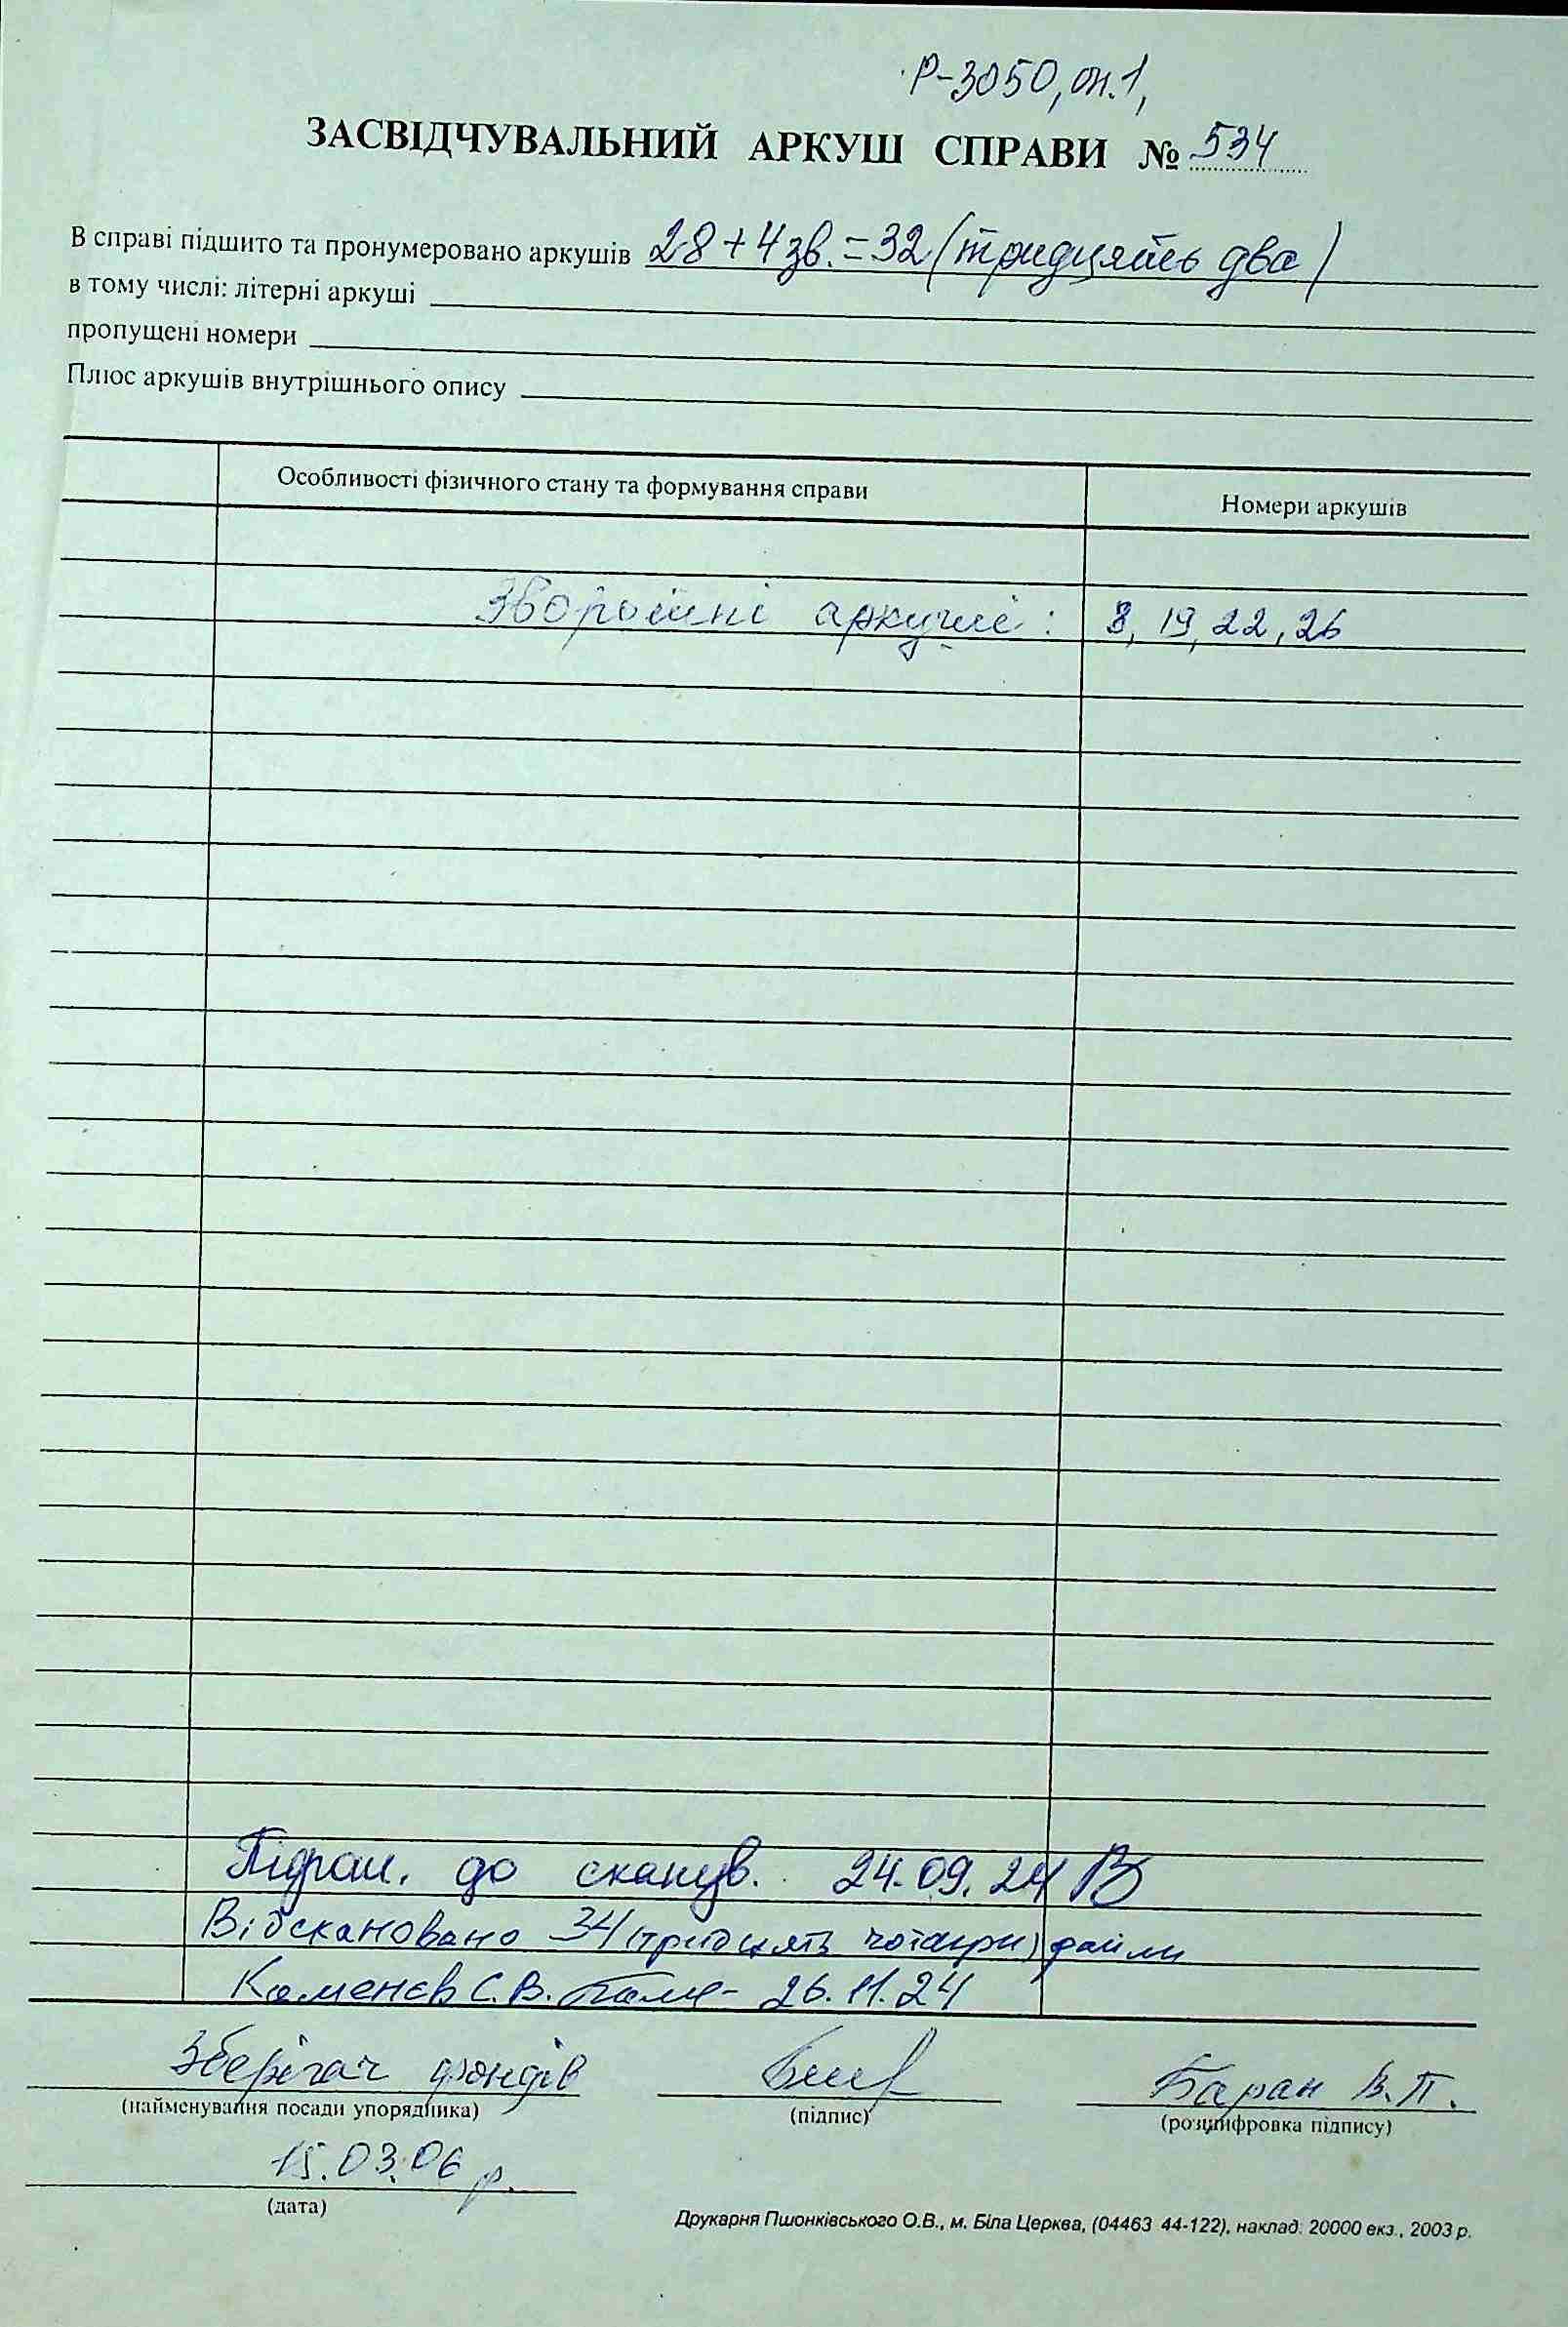 Р-3050, оп.1,
ЗАСВІДЧУВАЛЬНИЙ АРКУШ СПРАВИ № 534
В справі підшито та пронумеровано аркушів 28+4зв.=32 (тридцять два)
в тому числі: літерні аркуші
пропущені номери
Плюс аркушів внутрішнього опису
Особливості фізичного стану та формування справи Номери аркушів
Зворотні аркуші: 8, 19, 22, 26
до сканув. 24.09.24
Відскановано 34 (тридцять чотири) файли
Каменєв С.В. 26.11.24
Зберігач фондів Баран В.П.
(найменування посади упорядника) (підпис) (розшифровка підпису)
15.03.06 р.
(дата)
Друкарня Пшонківського О.В., м. Біла Церква, (04463 44-122), наклад. 20000 екз., 2003 р.